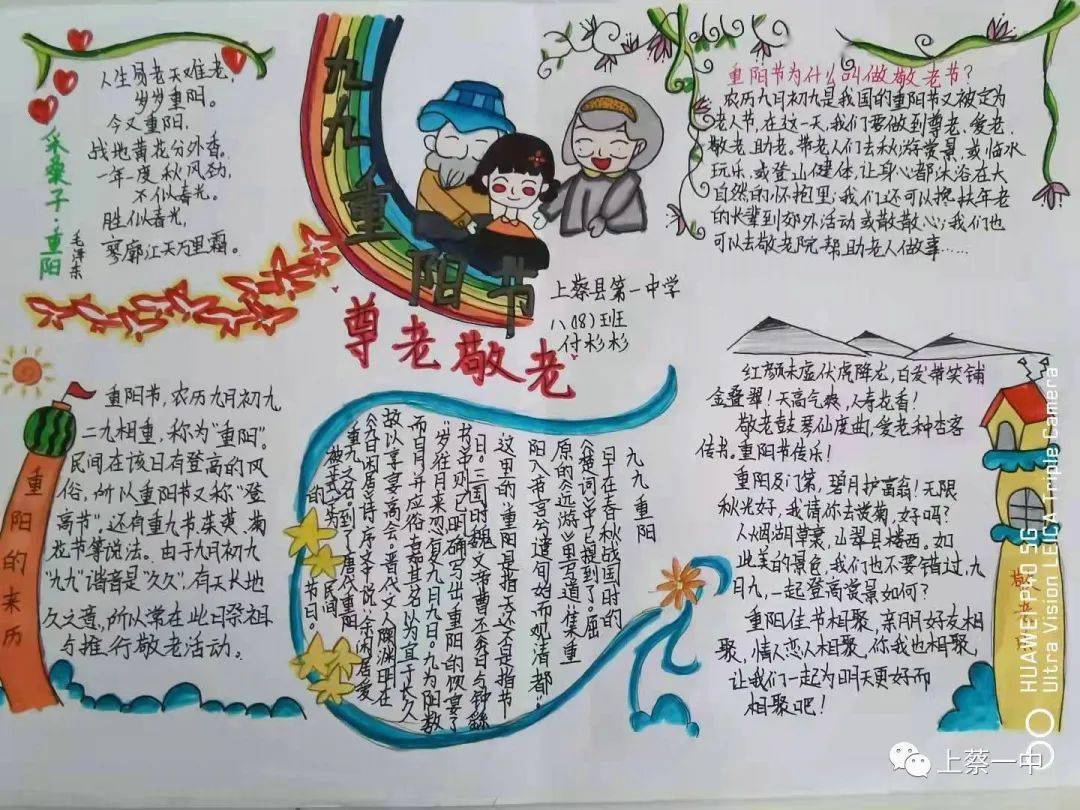 采桑子·重阳
毛泽东
人生易老天难老,
岁岁重阳。
今又重阳,
战地黄花分外香。
一年一度秋风劲,
不似春光。
胜似春光,
寥廓江天万里霜。
九九重阳节
尊老敬老
上蔡县第一中学
八(18)班
付杉杉
重阳节为什么叫做敬老节?
农历九月初九是我国的重阳节又被定为
老人节,在这一天,我们要做到尊老、爱老、
敬老、助老。带老人们去秋游赏景,或临水
玩乐,或登山健体,让身心都沐浴在大
自然的怀抱里;我们还可以搀扶年老
的长辈到郊外活动或散散心;我们也
可以去敬老院帮助老人做事……
重阳的来历
重阳节,农历九月初九
二九相重,称为"重阳"。
民间在该日有登高的风
俗,所以重阳节又称"登
高节",还有重九节、茱萸、菊
花节等说法。由于九月初九
"九九"谐音是"久久",有天长地
久之意,所以常在此日祭祖
与推行敬老活动。
九九重阳
早在春秋战国时的
《楚词》中已提到了。屈
原的《远游》里写道:"集重
阳入帝宫兮,造旬始而观清都"。
这里的"重阳"是指天,还不是指节
日。三国时魏文帝曹丕《九日与钟繇
书》中,则已明确写出重阳的饮宴了:
"岁往月来,忽复九月九日。九为阳数,
而日月并应,俗嘉其名,以为宜于长久,
故以享宴高会。"晋代文人陶渊明在
《九日闲居》诗序文中说:"余闲居,爱
重九之名。到了唐代重阳
被正式定为民间
的节日。
红颜未虚伏虎降龙,白发带笑铺
金叠翠!天高气爽,人寿花香!
敬老鼓琴仙度曲,爱老种杏客
传书。重阳节传乐!
重阳及门第,碧月护高翁!无限
秋光好,我请你去赏菊,好吗?
人烟湖草裏,山翠县楼西。如
此美的景色,我们也不要错过,九
月九,一起登高赏景如何?
重阳佳节相聚,亲朋好友相
聚,情人恋人相聚,你我也相聚,
让我们一起为明天更好而
相聚吧!
HUAWEI P40 5G
Ultra Vision LEICA Triple Camera
上蔡一中